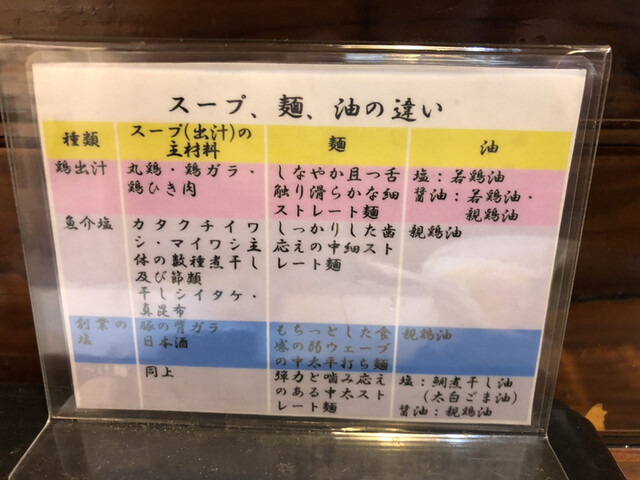 スープ、麺、油の違い
種類
スープ(出汁)の
主材料
麺
油
鶏出汁
丸鶏・鶏ガラ・
鶏ひき肉
しなやか且つ舌
触り滑らかな細
ストレート麺
塩:若鶏油
醤油:若鶏油・
親鶏油
魚介塩
カタクチイワ
シ・マイワシ主
体の数種煮干し
及び節類
干しシイタケ・
真昆布
しっかりした歯
応えの中細スト
レート麺
親鶏油
創業の
塩
豚の背ガラ
日本酒
もちっとした食
感の弱ウェーブ
の中太平打ち麺
親鶏油
同上
弾力と噛み応え
のある中太スト
レート麺
塩:鯛煮干し油
(太白ごま油)
醤油:親鶏油